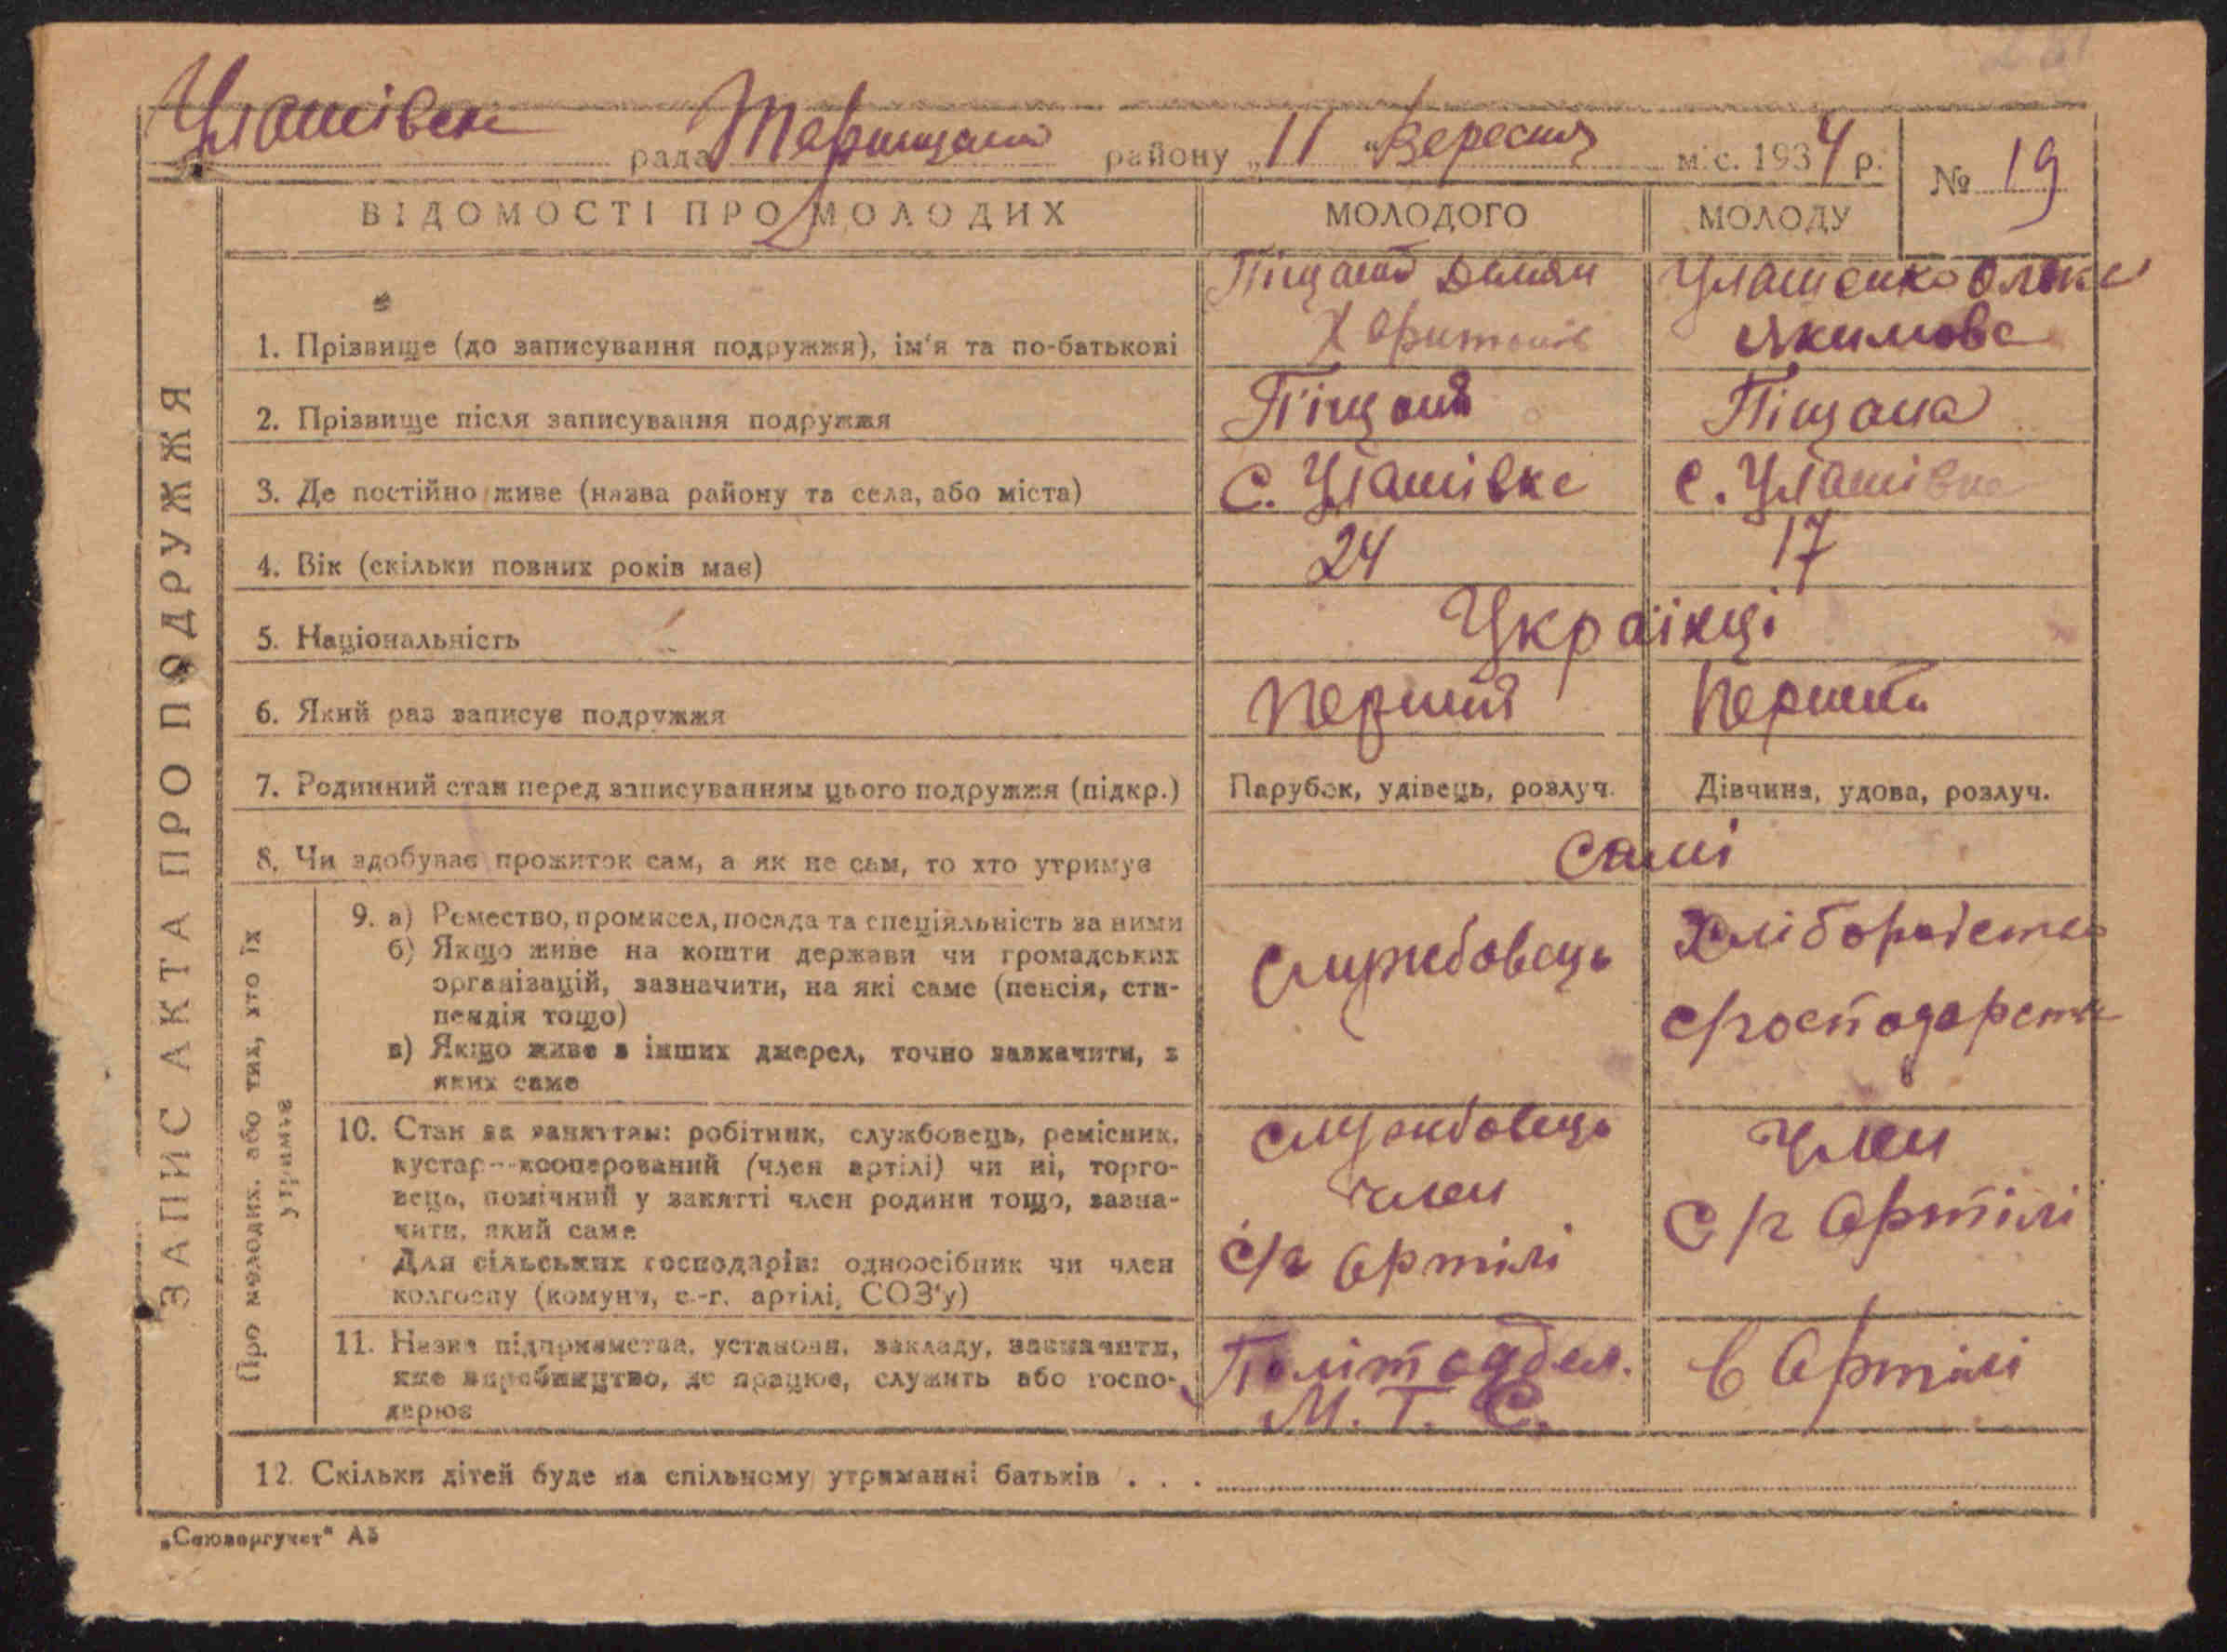 Улашівск рада Таращан району „11 “ Вересня м-с. 1934 р. № 19
ЗАПИС АКТА ПРО ПОДРУЖЖЯ
ВІДОМОСТІ ПРО МОЛОДИХ МОЛОДОГО МОЛОДУ
Піщаний Демян Улашенко Олька
1. Прізвище (до записування подружжя), ім'я та по-батькові Харитонів Якимова
2. Прізвище після записування подружжя Піщаний Піщана
3. Де постійно живе (назва району та села, або міста) С. Улашівка с. Улашівка
4. Вік (скільки повних років має) 24 17
5. Національність Українці
6. Який раз записує подружжя перший перший
7. Родинний стан перед записуванням цього подружжя (підкр.) Парубок, удівець, розлуч. Дівчина, удова, розлуч.
8. Чи здобуває прожиток сам, а як не сам, то хто утримує самі
Про молодих, або тих, хто їх утримує
9. а) Ремество, промисел, посада та спеціяльність за ними
б) Якщо живе на кошти держави чи громадських
організацій, зазначити, на які саме (пенсія, сти-
пендія тощо)
в) Якщо живе з інших джерел, точно зазначити, з
яких саме
службовець
с/господарст
10. Стан за заняттям: робітник, службовець, ремісник,
кустар--кооперований (член артілі) чи ні, торго-
вець, помічний у занятті член родини тощо, зазна-
чити, який саме
Для сільських господарів: одноосібник чи член
колгоспу (комуни, с.-г. артілі, СОЗ'у)
службовець
член
с/г артілі
член
с/г артілі
11. Назва підприємства, установи, закладу, зазначити,
яке виробництво, де працює, служить або госпо-
дарює
Політоддел.
М. Т. С.
в артілі
12. Скільки дітей буде на спільному утриманні батьків . . .
„Союзоргучет“ А5